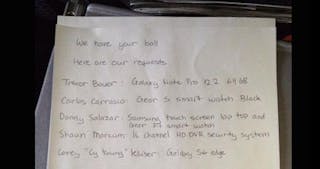 We have your ball
Here are our requests.
Trevor Bauer : Galaxy Note Pro 12.2 64GB
Carlos Carrasco : Gear S smart watch Black
Danny Salazar : Samsung touch screen lap top and
Gear smart watch
Shaun Marcum 16 channel HD DVR security system
Corey "Cy Young" Kluber : Galaxy S6 edge